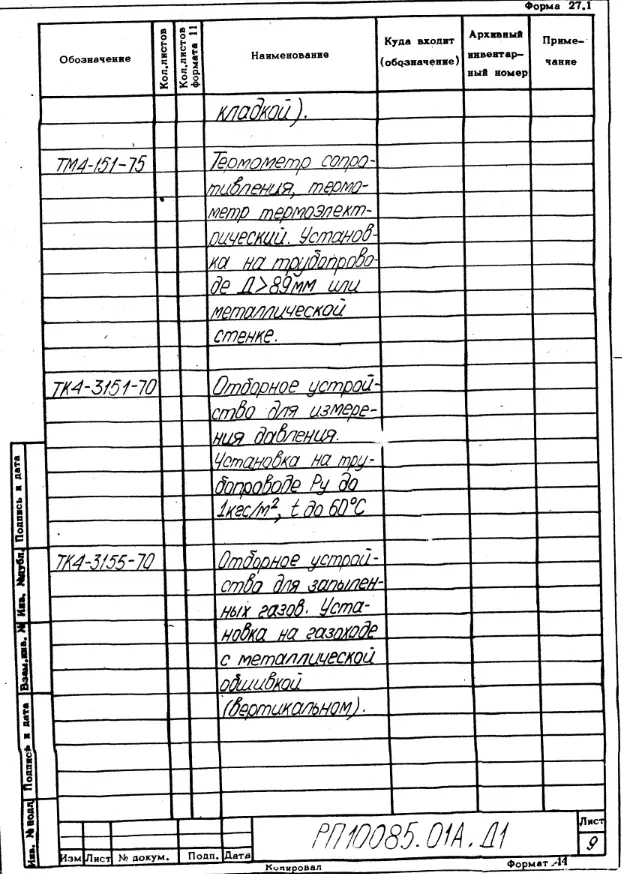 Форма 27.1
Обозначение
Кол.листов
Кол.листов формата 11
Наименование
Куда входит (обозначение)
Архивный инвентарный номер
Примечание
кладкой).
ТМ4-151-75 Термометр сопро-
тивления, термо-
метр термоэлект-
рический. Установ-
ка на трубопрово-
де Д>89мм или
металлической
стенке.
ТК4-3151-70 Отборное устрой-
ство для измере-
ния давления.
Установка на тру-
бопроводе Ру до
1кгс/м², t до 60°С
ТК4-3155-70 Отборное устрой-
ство для запылен-
ных газов. Уста-
новка на газоходе
с металлической
обшивкой
(вертикальном).
Подпись и дата
Инв. №дубл.
Взам.инв. №
Подпись и дата
Инв. №подл
Изм Лист № докум. Подп. Дата
РП10085.01А.Д1
Лист
9
Копировал
Формат А4